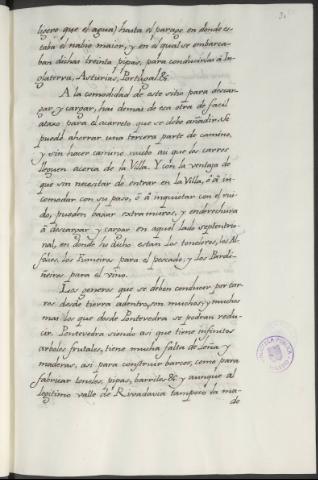 ligero que el agua) hasta el parage en donde es-
taba el nabio maior, y en el qual se embarca-
ban dichas treinta pipas, para conducirlas á In-
glaterra, Asturias, Portugal &c.
A la comodidad de este sitio para descar-
gar y cargar, hai demas de esa otra de facil
atajo para el acarreto que se debe añadir. Se
puede ahorrar una tercera parte de camino,
y sin hacer camino nuebo au que los carros
lleguen acerca de la Villa. Y con la ventaja de
que sin necesitar de entrar en la Villa, ó á in-
comodar con su paso, ó á inquietar con el rui-
do, pueden bajar extramuros, y enderechura
á descargar y cargar en aquel lado septentrio-
nal, en donde he dicho estan los toneleros, los Al-
folies, los Fumeiros para el pescado, y los Bardi-
ñeiros para el vino.
Los generos que se deben conducir por car-
ros desde tierra adentro, son muchos, y muchos
mas los que desde Pontevedra se podran redu-
cir. Pontevedra siendo asi que tiene infinitos
arboles frutales, tiene mucha falta de Leña y
maderas, asi para construir barcos, como para
fabricar toneles, pipas, barriles &c y aunque al
legitimo valle de Rivadavia tampoco la ma-
de